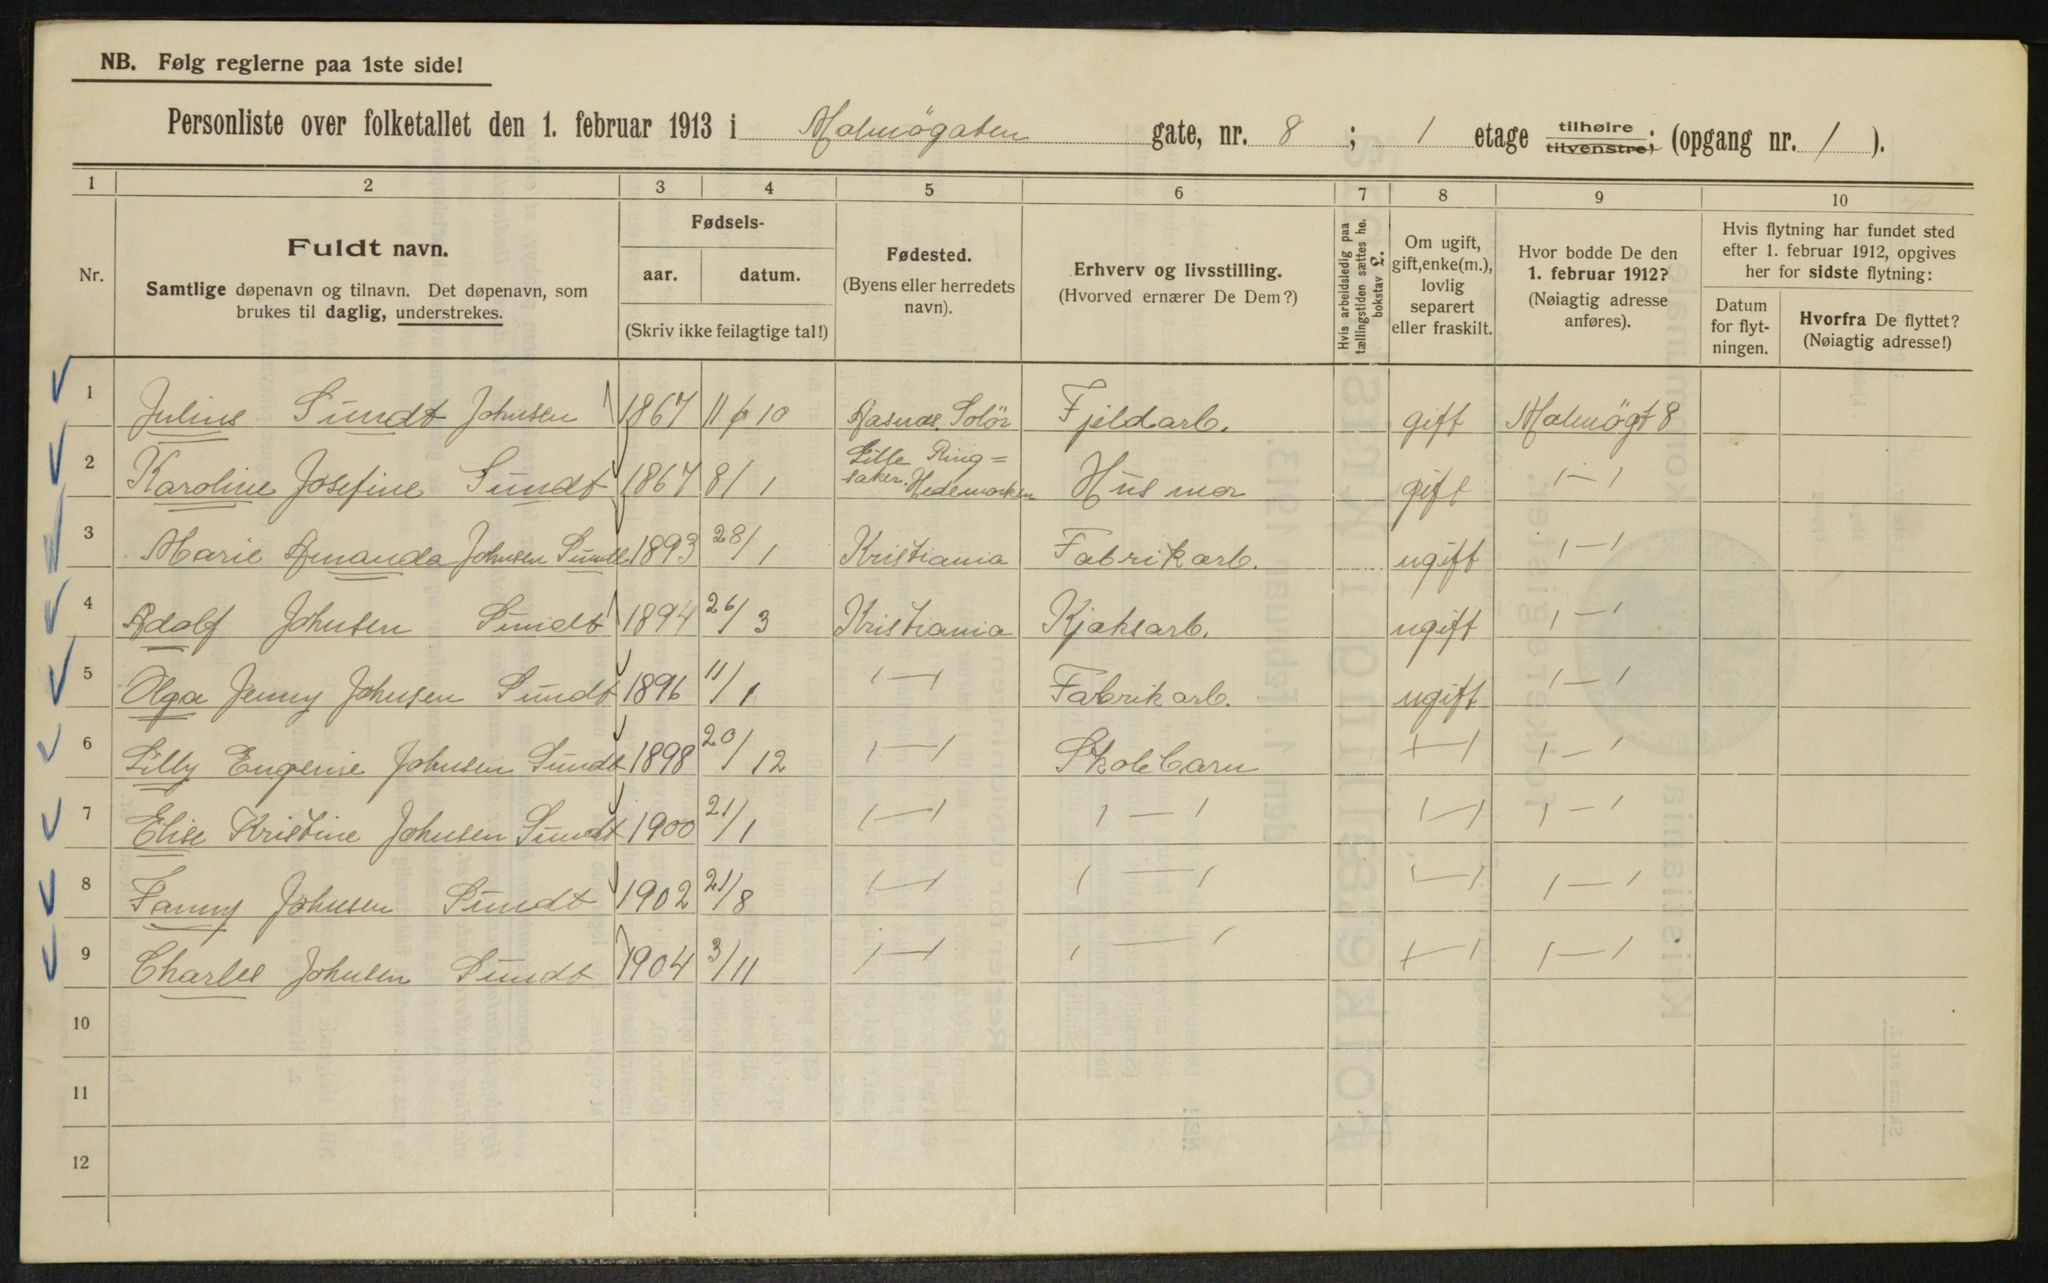 NB. Følg reglerne paa 1ste side!
Personliste over folketallet den 1. februar 1913 i Malmögaten gate, nr. 8 ; 1 etage tilhøire tilvenstre; (opgang nr. 1 ).
1 2 3 4 5 6 7 8 9 10
Nr.
Fuldt navn.
Samtlige døpenavn og tilnavn. Det døpenavn, som
brukes til daglig, understrekes.
Fødsels-
aar. datum.
(Skriv ikke feilagtige tal!)
Fødested.
(Byens eller herredets
navn).
Erhverv og livsstilling.
(Hvorved ernærer De Dem?)
Hvis arbeidsledig paa
tællingstiden sættes he.
bokstav L.
Om ugift,
gift, enke(m.),
lovlig
separert
eller fraskilt.
Hvor bodde De den
1. februar 1912?
(Nøiagtig adresse
anføres).
Hvis flytning har fundet sted
efter 1. februar 1912, opgives
her for sidste flytning:
Datum
for flyt-
ningen.
Hvorfra De flyttet?
(Nøiagtig adresse!)
1 Julius Sundt Johnsen 1867 11/10 Aasnæs Solör Fjeldarb. gift Malmögt 8
2 Karoline Josefine Sundt 1867 8/1 Lille Ring=
saker. Hedemarken Husmor gift ı—ı
3 Marie Amanda Johnsen Sundt 1893 28/1 Kristiania Fabrikarb. ugift ı—ı
4 Adolf Johnsen Sundt 1894 26/3 Kristiania Kjøksarb. ugift ı—ı
5 Olga Jenny Johnsen Sundt 1896 11/1 ı—ı Fabrikarb. ugift ı—ı
6 Lilly Eugenie Johnsen Sundt 1898 20/12 ı—ı Skolebarn ı—ı ı—ı
7 Elise Kristine Johnsen Sundt 1900 21/1 ı—ı ı—ı ı—ı ı—ı
8 Fanny Johnsen Sundt 1902 21/8 ı—ı ı—ı ı—ı ı—ı
9 Charles Johnsen Sundt 1904 3/11 ı—ı ı—ı ı—ı ı—ı
10
11
12